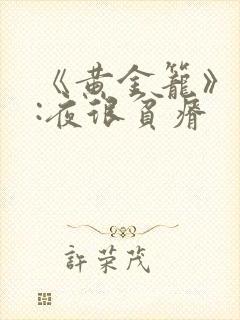 《黄金籠》
:夜很負瘠
許荣茂